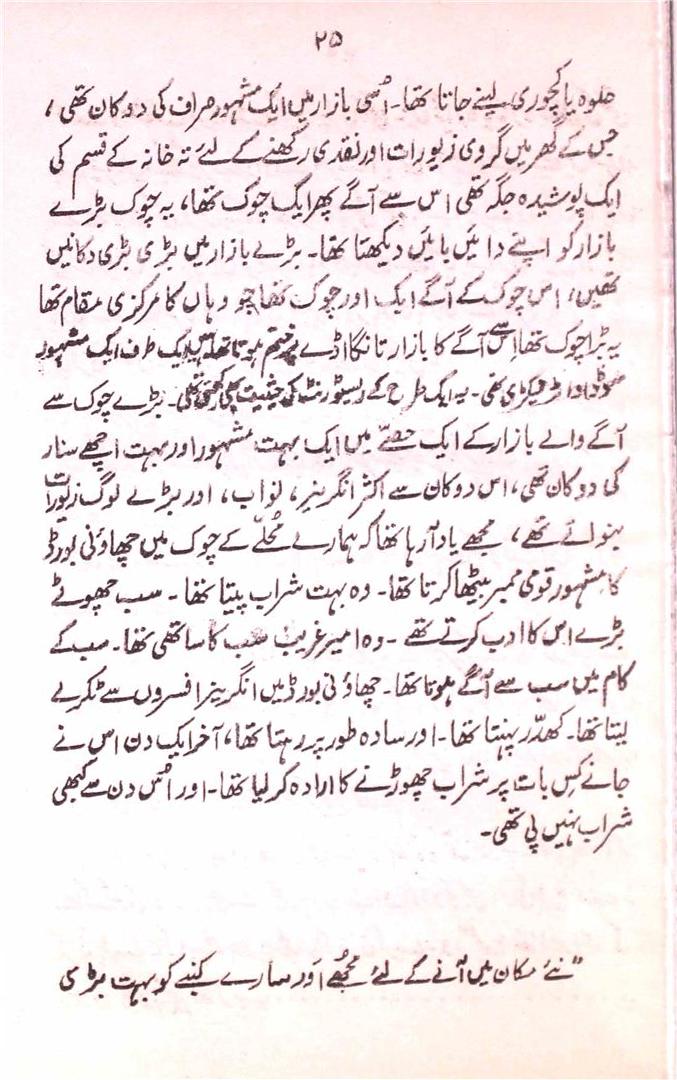 ۲۵
حلوہ یا کچوری لینے جاتا تھا۔ اسی بازار میں ایک مشہور صراف کی دوکان تھی،
جس کے گھر میں گروی زیورات اور نقدی رکھنے کے لئے تہ خانہ کے قسم کی
ایک پوشیدہ جگہ تھی اس سے آگے پھر ایک چوک تھا، یہ چوک بڑے
بازار کو اپنے دائیں بائیں دیکھتا تھا۔ بڑے بازار میں بڑی بڑی دکانیں
تھیں، اس چوک کے آگے ایک اور چوک تھا جو وہاں کا مرکزی مقام تھا
یہ بڑا چوک تھا اس سے آگے کا بازار تانگا اڈے پر ختم ہوتا تھا ایک طرف ایک مشہور
سوڈا واٹر فیکٹری تھی۔ یہ ایک طرح کے ریسٹورنٹ کی حیثیت بھی رکھتی تھی۔ بڑے چوک سے
آگے والے بازار کے ایک حصے میں ایک بہت مشہور اور بہت اچھے سنار
کی دوکان تھی، اس دوکان سے اکثر انگریز، نواب، اور بڑے لوگ زیورات
بنواتے تھے، مجھے یاد آرہا تھا کہ ہمارے محلّے کے چوک میں چھاؤنی بورڈ
کا مشہور قومی ممبر بیٹھا کرتا تھا۔ وہ بہت شراب پیتا تھا۔ سب چھوٹے
بڑے اس کا ادب کرتے تھے۔ وہ امیر غریب سب کا ساتھی تھا۔ سب کے
کام میں سب سے آگے ہوتا تھا۔ چھاؤنی بورڈ میں انگریز افسروں سے ٹکر لے
لیتا تھا۔ کھدّر پہنتا تھا۔ اور سادہ طور پر رہتا تھا، آخر ایک دن اس نے
جانے کس بات پر شراب چھوڑنے کا ارادہ کر لیا تھا۔ اور اُس دن سے کبھی
شراب نہیں پی تھی۔
"نئے مکان میں آنے کے لئے مجھے اور سارے کنبے کو بہت بڑی